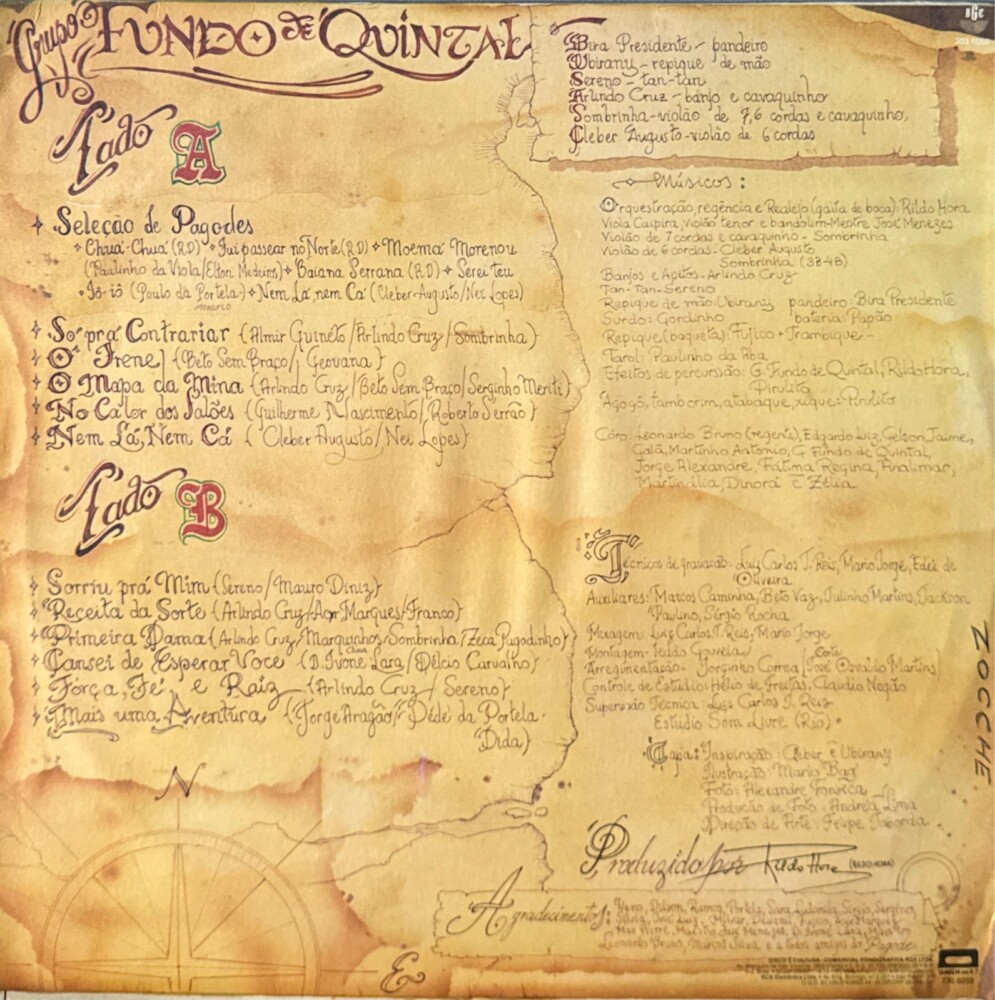 Grupo FUNDO de QUINTAL
Bira Presidente - pandeiro
Ubirany - repique de mão
Sereno - tan-tan
Arlindo Cruz - banjo e cavaquinho
Sombrinha - violão de 7,6 cordas e cavaquinho,
Cleber Augusto - violão de 6 cordas
Lado A
Seleção de Pagodes
Chuá-Chuá (R.D) Fui passear no Norte (R.D) Moema Morenou
(Paulinho da Viola/Elton Medeiros) Baiana Serrana (R.D) Serei teu
Iô-iô (Paulo da Portela) Nem Lá, nem Cá (Cleber Augusto/Nei Lopes)
Só prá Contrariar (Almir Guinéto/Arlindo Cruz/Sombrinha)
Ô Irene (Beto Sem Braço/Geovana)
O Mapa da Mina (Arlindo Cruz/Beto Sem Braço/Serginho Meriti)
No Calor dos Salões (Guilherme Nascimento/Roberto Serrão)
Nem Lá, Nem Cá (Cleber Augusto/Nei Lopes)
Lado B
Sorriu prá Mim (Sereno/Mauro Diniz)
Receita da Sorte (Arlindo Cruz/Acyr Marques/Franco)
Primeira Dama (Arlindo Cruz, Marquinhos/Sombrinha/Zeca Pagodinho)
China
Cansei de Esperar Você (D. Ivone Lara/Délcio Carvalho)
Força, Fé, e Raiz (Arlindo Cruz/Sereno)
Mais uma Aventura (Jorge Aragão/Dédé da Portela-
Dida)
N
E
Músicos:
Orquestração, regência e Realejo (gaita de boca) Rildo Hora
Viola Caipira, violão tenor e bandolim - Mestre José Menezes
Violão de 7 cordas e cavaquinho - Sombrinha
violão de 6 cordas: Cleber Augusto
Sombrinha (3B-4B)
Banjos e Apitos - Arlindo Cruz
Tan-Tan - Sereno
Repique de mão: Ubirany pandeiro: Bira Presidente
Surdo: Gordinho bateria: Papão
Repique (baqueta): Fujico - Trambique -
Tarol: Paulinho da Aba
Efeitos de percursão: G. Fundo de Quintal, Rildo Hora,
Pirulito
Agogô, tamborim, atabaque, xique: Pirulito
Côro: Leonardo Bruno (regente), Edgardo Luiz, Gelson, Jaime,
Galã, Martinho Antonio, G. Fundo de Quintal,
Jorge Alexandre, Fatima Regina, Analimar,
Martinália, Dinorá e Zélia
Técnicos de gravação: Luiz Carlos T. Reis, Mario Jorge, Edei de
Oliveira
Auxiliares: Marcos Caminha, Beto Vaz, Julinho Martins, Jackson
Paulino, Sérgio Rocha
Mixagem: Luiz Carlos T. Reis, Mario Jorge
Montagem: Ieddo Gouvela
Corte:
Arregimentação - Jorginho Correa (José Osvaldo Martins)
Controle de Estúdio: Hélio de Freitas, Claudio Negão
Supervisão Técnica: Luis Carlos T. Reis
Estúdio Som Livre (Rio)
Capa: Inspiração: Cleber e Ubirany
Ilustração: Mario "Bag"
Foto: Alexandre Fonseca
Produção de Foto: Andréa Lima
Direção de Arte: Felipe Taborda
ZOCCHE
Produzido por Rildo Hora (RILDO HORA)
Agradecimentos:
RGE